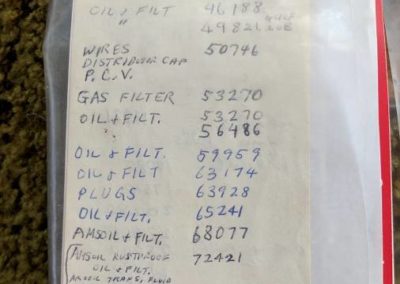 OIL & FILT 46188
" 49821
WIRES 50746
DISTRIBUTER CAP
P.C.V.
GAS FILTER 53270
OIL & FILT. 53270
56486
OIL & FILT. 59959
OIL & FILT 63174
PLUGS 63928
OIL & FILT. 65241
AMSOIL & FILT. 68077
AMSOIL RUSTPROOF 72421
OIL & FILT.
AMSOIL TRANS. FLUID